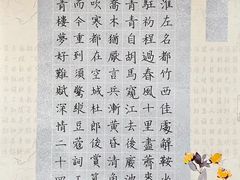 淮左名都竹西佳處解鞍少
駐初程過春風十里盡薺麥
青青自胡馬窺江去後廢池
喬木猶厭言兵漸黃昏清角
吹寒都在空城杜郎俊賞算
而今重到須驚縱豆蔻詞工
青樓夢好難賦深情二十四